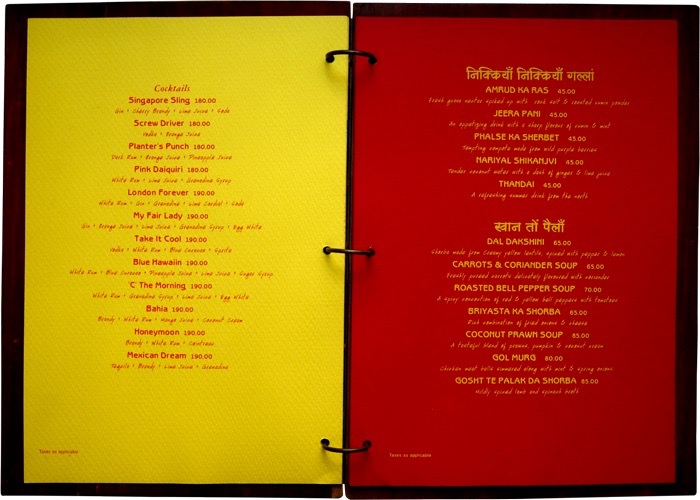 Cocktails
Singapore Sling 180.00
Gin • Cherry Brandy • Lime Juice • Soda
Screw Driver 180.00
Vodka • Orange Juice
Planter's Punch 180.00
Dark Rum • Orange Juice • Pineapple Juice
Pink Daiquiri 180.00
White Rum • Lime Juice • Grenadine Syrup
London Forever 190.00
White Rum • Gin • Grenadine • Lime Cordial • Soda
My Fair Lady 190.00
Gin • Orange Juice • Lime Juice • Grenadine Syrup • Egg White
Take It Cool 190.00
Vodka • White Rum • Blue Curacao • Sprite
Blue Hawaiin 190.00
White Rum • Blue Curacao • Pineapple Juice • Lime Juice • Sugar Syrup
'C' The Morning 190.00
White Rum • Grenadine Syrup • Lime Juice • Egg White
Bahia 190.00
Brandy • White Rum • Mango Juice • Coconut Cream
Honeymoon 190.00
Brandy • White Rum • Cointreau
Mexican Dream 190.00
Tequila • Brandy • Lime Juice • Grenadine
Taxes as applicable
निक्कियाँ निक्कियाँ गल्लां
AMRUD KA RAS 45.00
Fresh guava nectar spiked up with rock salt & roasted cumin powder
JEERA PANI 45.00
An appetizing drink with a sharp flavour of cumin & mint
PHALSE KA SHERBET 45.00
Tempting compote made from wild purple berries
NARIYAL SHIKANJVI 45.00
Tender coconut water with a dash of ginger & lime juice
THANDAI 45.00
A refreshing summer drink from the north
खान तों पैलाँ
DAL DAKSHINI 65.00
Shorba made from creamy yellow lentils, spiced with pepper & lemon
CARROTS & CORIANDER SOUP 65.00
Freshly pureed carrots delicately flavoured with coriander
ROASTED BELL PEPPER SOUP 70.00
A spicy concoction of red & yellow bell peppers with tomatoes
BRIYASTA KA SHORBA 65.00
Rich combination of fried onions & cheese
COCONUT PRAWN SOUP 85.00
A tasteful blend of prawns, pumpkin & coconut cream
GOL MURG 80.00
Chicken meat balls simmered along with mint & spring onions
GOSHT TE PALAK DA SHORBA 85.00
Mildly spiced lamb and spinach broth
Taxes as applicable